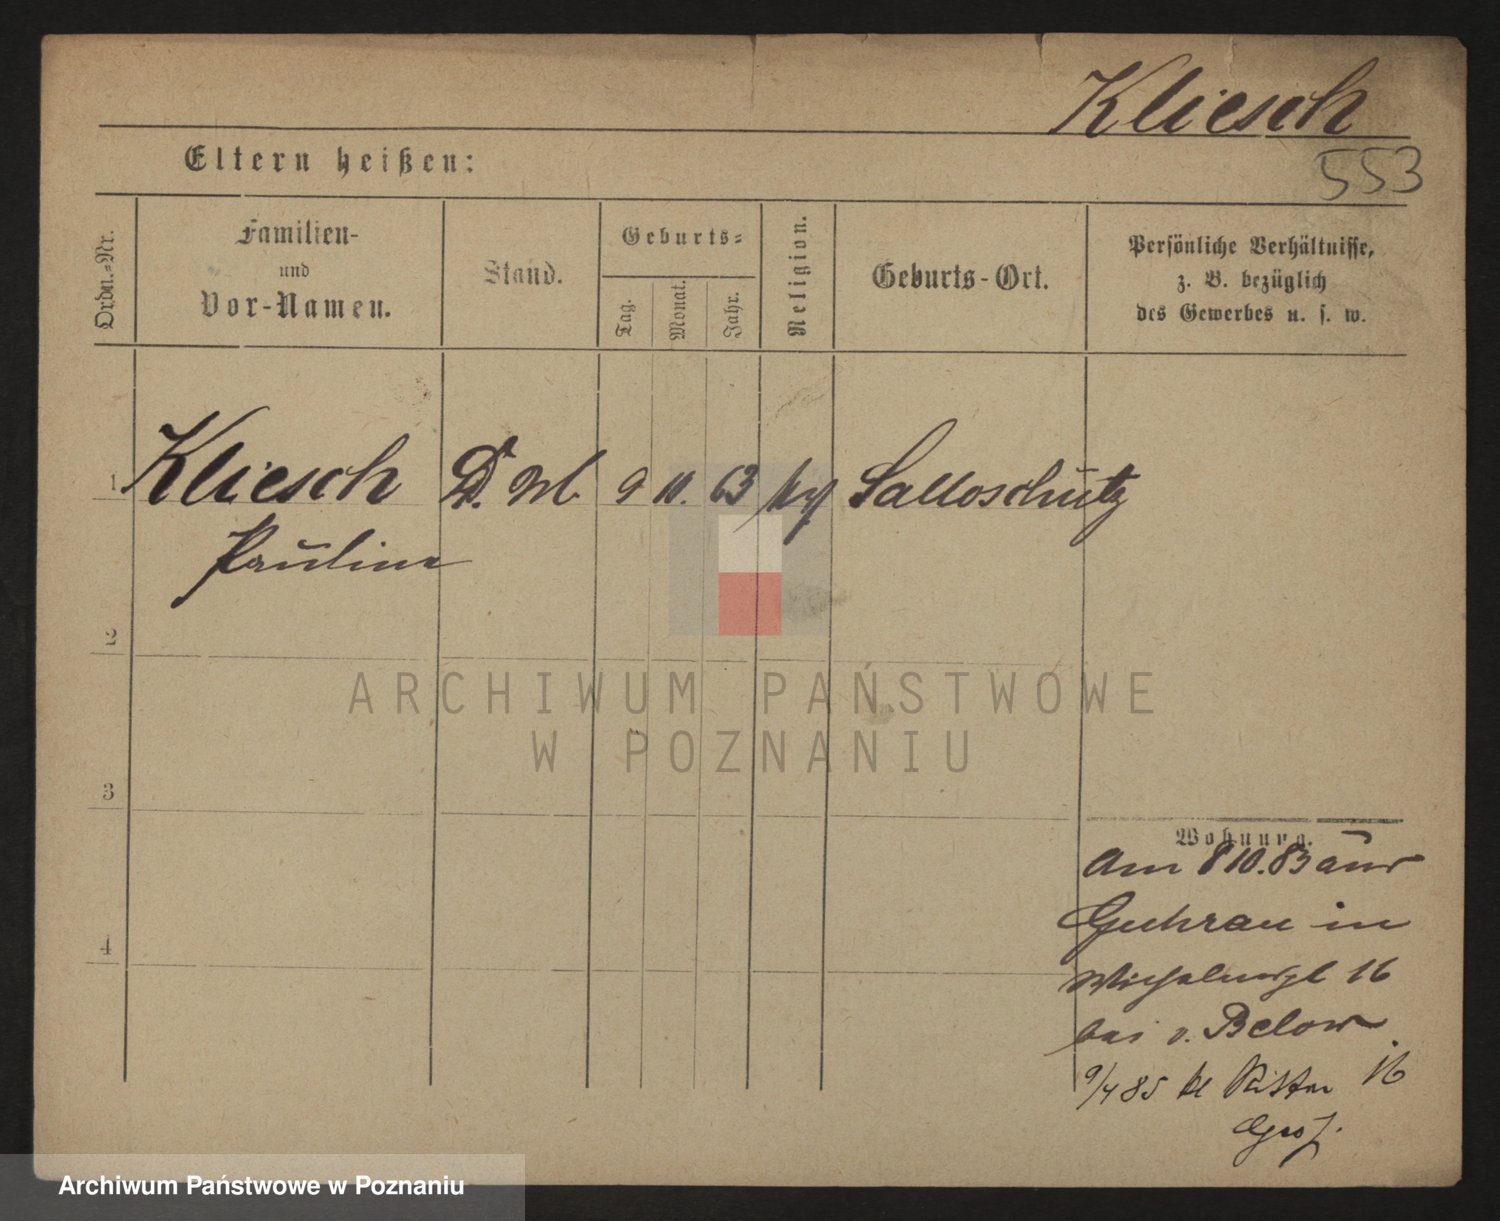 Kliesch
553
Eltern heißen:
Ordn.=Nr.
Familien-
und
Vor-Namen.
Stand.
Geburts=
Tag.
Monat.
Jahr.
Religion.
Geburts-Ort.
Persönliche Verhältnisse,
z. B. bezüglich
des Gewerbes u. s. w.
1
Kliesch D. M. 9 11. 63 Salloschütz
Pauline
2
ARCHIWUM PAŃSTWOWE
W POZNANIU
3
Wohnung.
Am 8 10.83 aus
Guhrau in
16
bei v. Below
9/4 85 kl Ritter 16
4
Archiwum Państwowe w Poznaniu